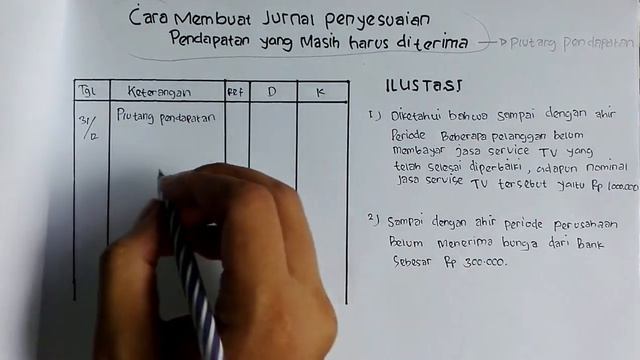 Cara Membuat Jurnal Penyesuaian
Pendapatan yang Masih harus diterima → Piutang pendapatan
Tgl Keterangan Ref D K
31/12 Piutang pendapatan
ILUSTASI
1) Diketahui bahwa sampai dengan ahir
Periode Beberapa pelanggan belum
membayar jasa service TV yang
telah selesai diperbaiki, adapun nominal
Jasa service TV tersebut yaitu Rp 1.000.000
2) Sampai dengan ahir periode perusahaan
Belum Menerima bunga dari Bank
Sebesar Rp 300.000.